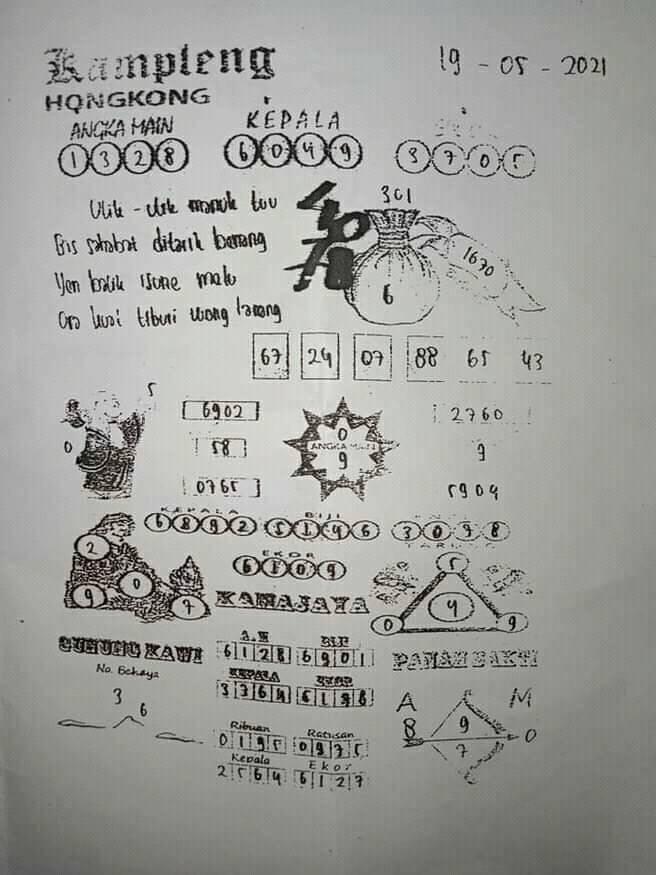 Kampleng
19 - 05 - 2021
HONGKONG
ANGKA MAIN
KEPALA
1 3 2 8
6 0 4 9
3 7 0 5
301
Gis sahabat ditarik barang
1670
6
67 24 07 88 65 43
5
6902
2760
0
0
ANGKA MAIN
58
9
9
0765
5904
KEPALA BIJI
6 8 9 2 5 1 4 6 3 0 7 8
TARUNG
EKOR
2
5
6 5 0 9
0
9 7
KAMAJAYA
4
0 9
GUNUNG KAWI
A.M BIJI
6 1 2 8 6 9 0 1
PANAH SAKTI
No. Bahaya
KEPALA EKOR
3 7 6 4 6 1 9 8
3
6
A M
8 9 0
7
Ribuan Ratusan
0 1 9 5 0 9 7 5
Kepala Ekor
2 5 6 4 6 1 2 7